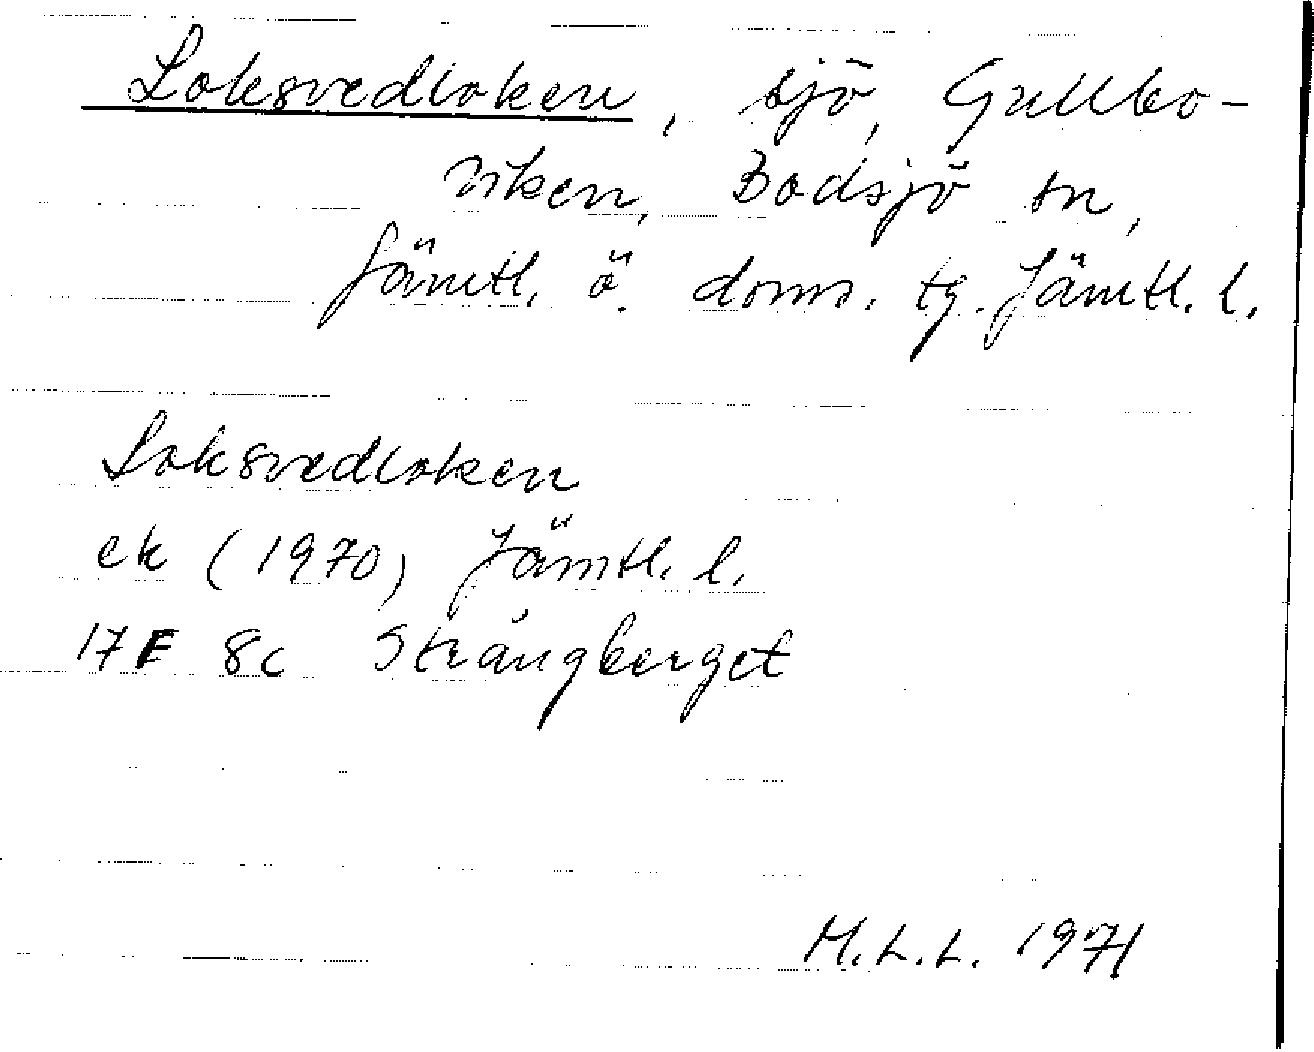 Loksvedloken, sjö, Gullbo-
viken, Bodsjö sn,
Jämtl. ö. doms. tg. Jämtl. l.
Loksvedloken
ek (1970) Jämtl. l.
17F 8c Strångberget
M.L.L. 1971